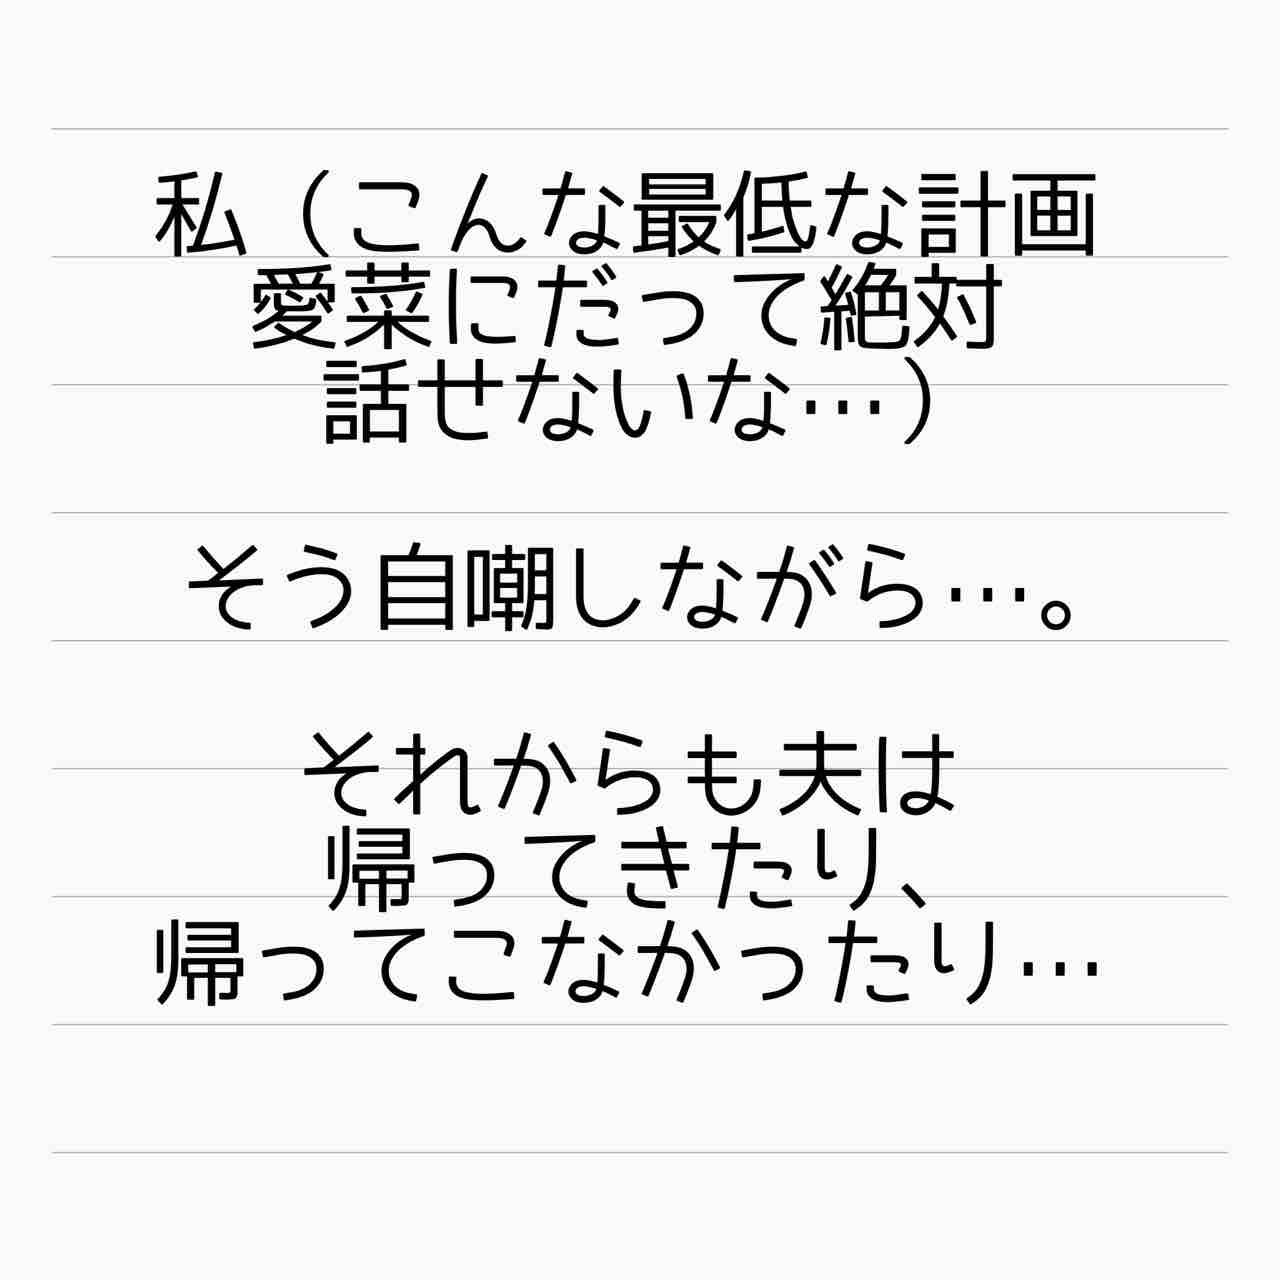 私（こんな最低な計画
愛菜にだって絶対
話せないな…）
そう自嘲しながら…。
それからも夫は
帰ってきたり、
帰ってこなかったり…